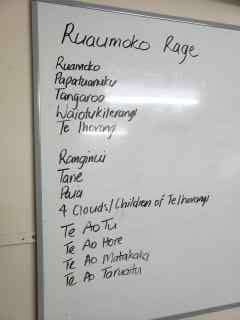 Ruaumoko Rage
Ruamoko
Papatuanuku
Tangaroa
Waiotukiterangi
Te Ihorangi
Ranginui
Tane
Paua
4 Clouds/Children of TeIhorangi
Te AoTu
Te Ao Hore
Te Ao Matakaka
Te Ao Taruaitu